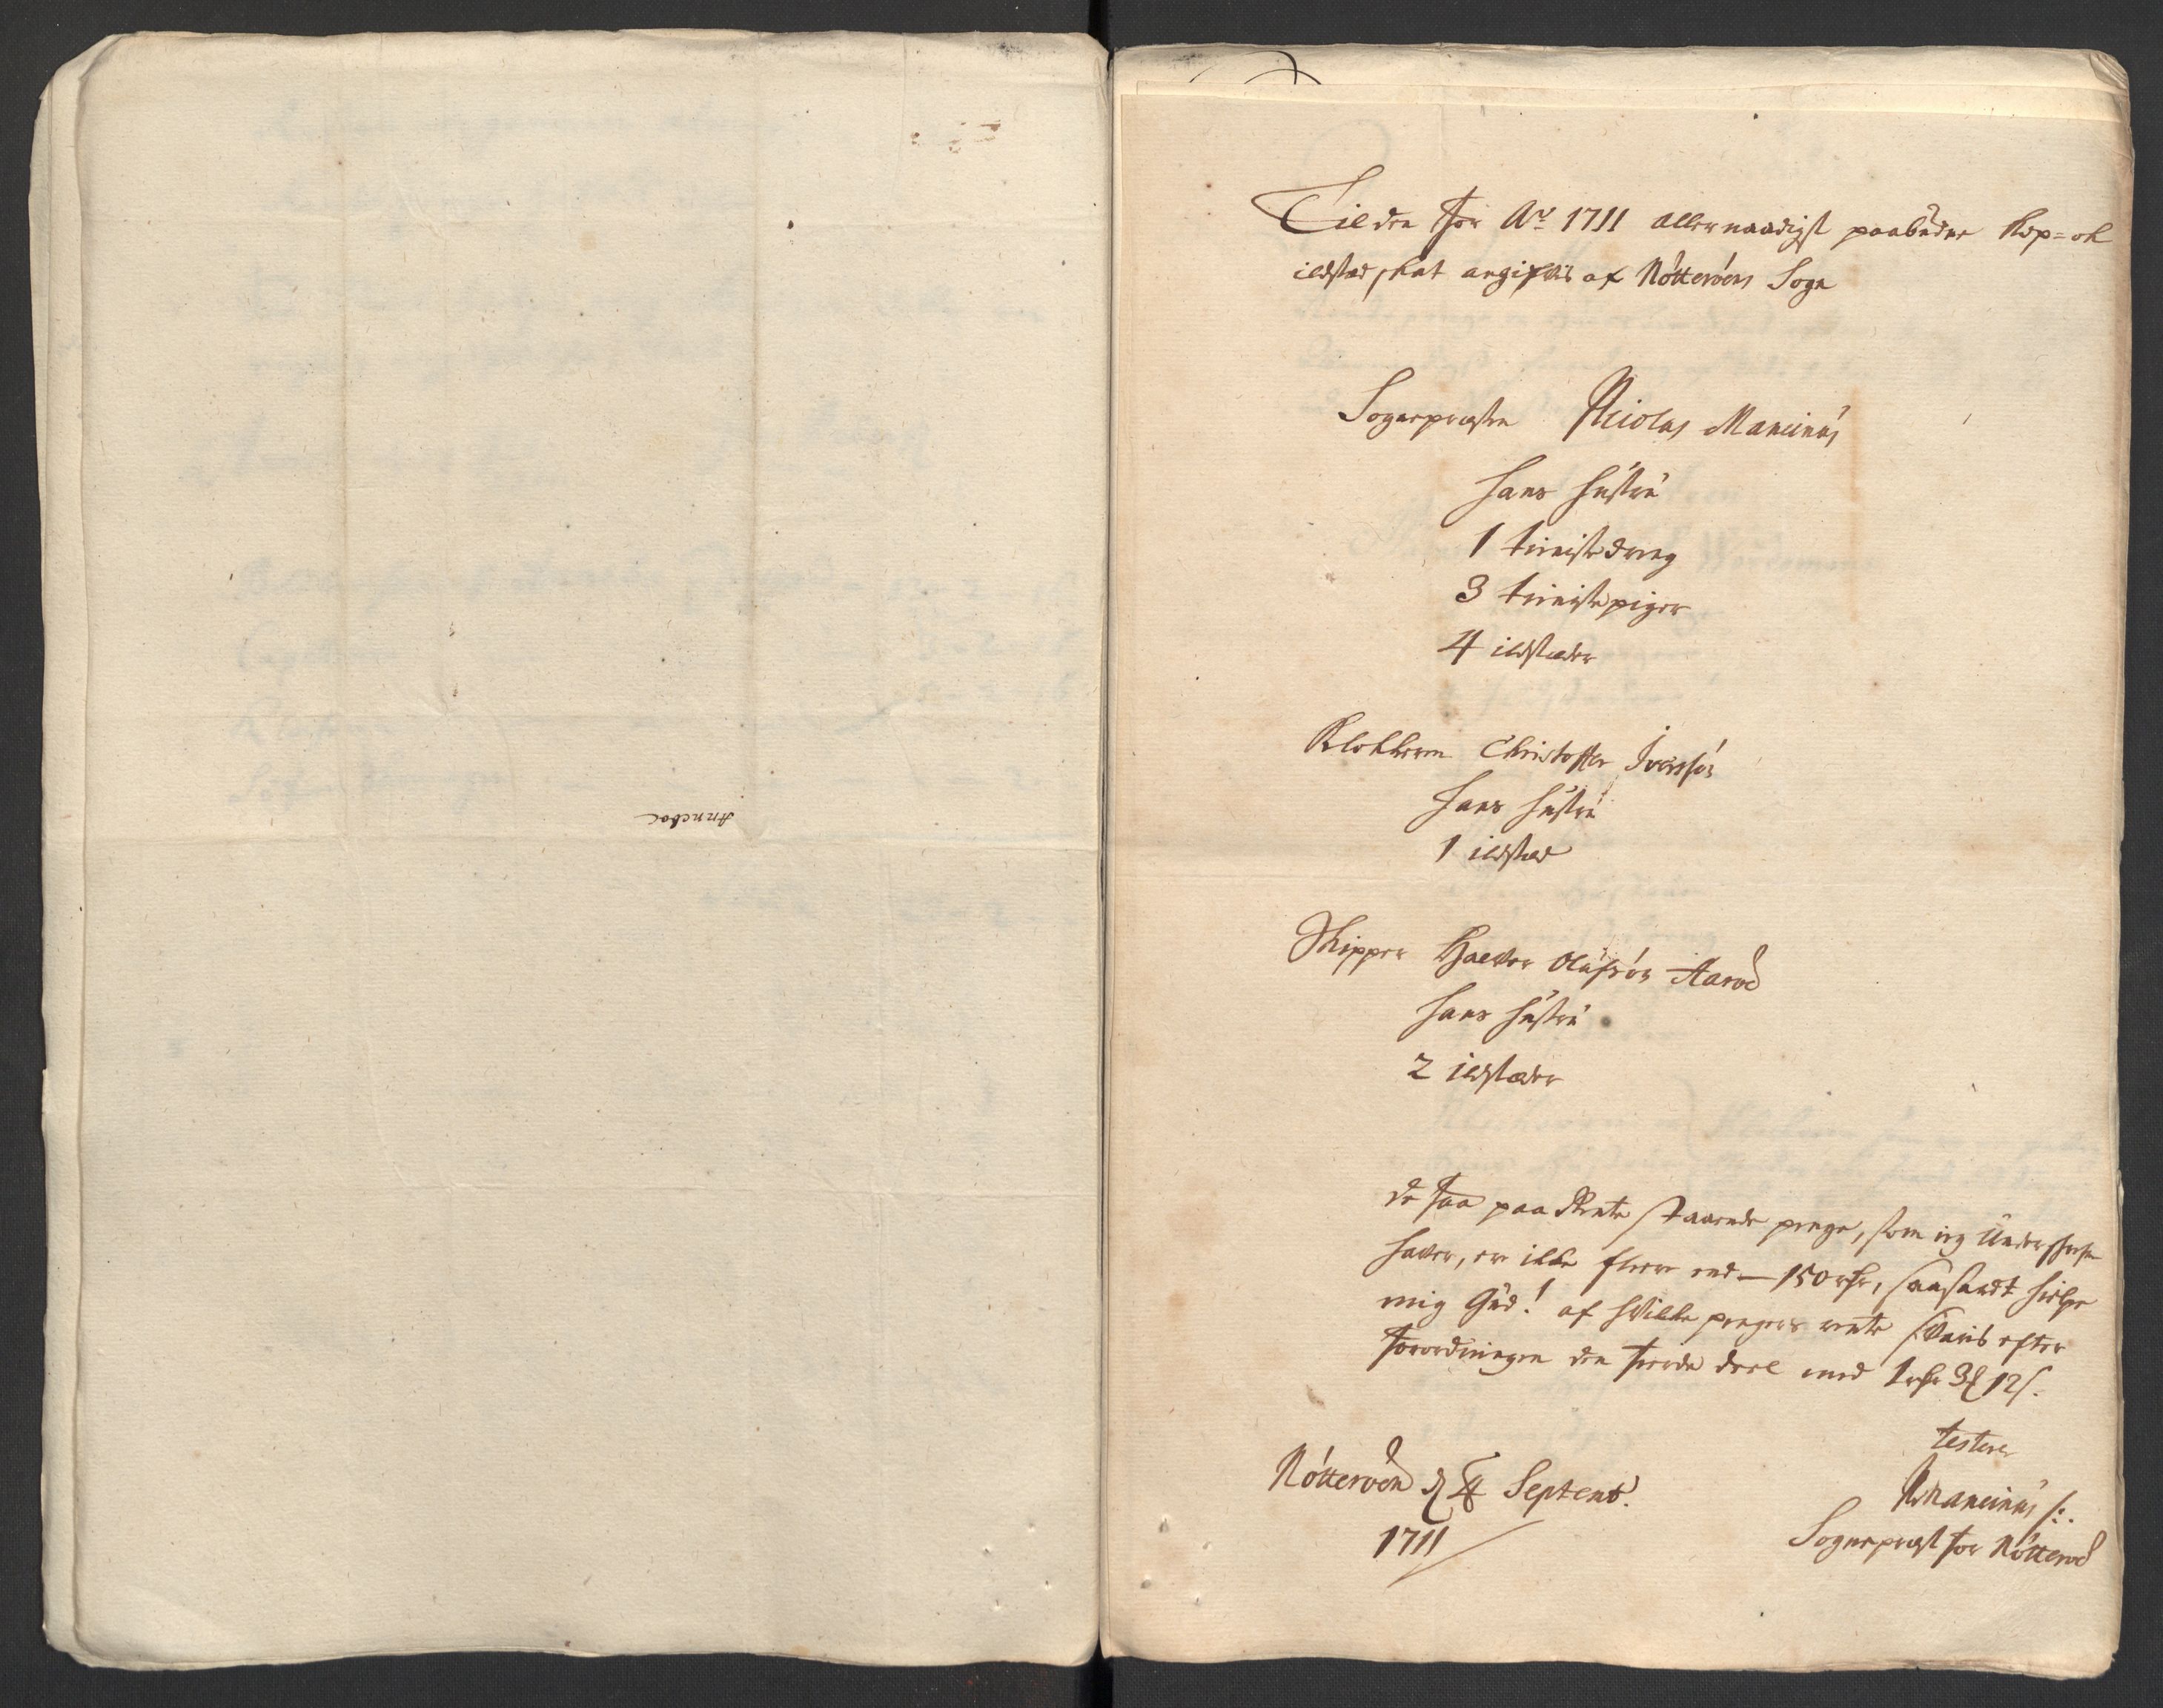 Anneboe
Til den for Aⁿ 1711 allernaadigst paabudne Kop= ok
ildsted skat angifvis af Nötteröens Sogn
Sognepresten Nicolas Mancinus
hans hustru
1 tieniste dreng
3 tieniste piger
4 ildsteder
Klokkeren Christoffer Iverssön
hans hustru
1 ildsted
Skipper Halvor Olufssön Aaröe
hans hustru
2 ildsteder
De faa paa Rente staaende penge, som ieg Underskrefne
haver, er ikke flere end — 150 rdr, saasandt hielpe
mig Gud! af hvilke pengers rente svaris efter
forordningen den fierde deel med 1 rdr 3 ʒ 12 s.
testerer
Nötteröen d 4 Septemb.
1711
NMancinus
Sogneprest for Nötteröe